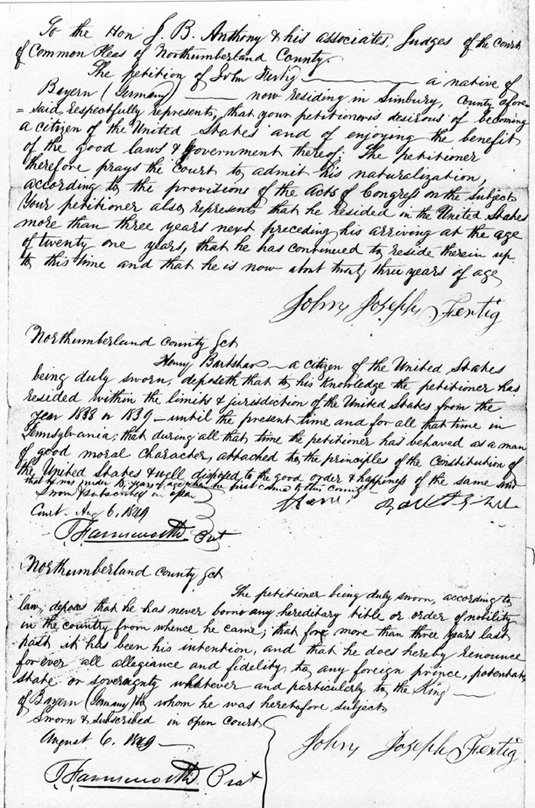 To the Hon J. B. Anthony & his associates, Judges of the Court
of Common Pleas of Northumberland County.
The petition of John Fertig a native of
Bayern (Germany) now residing in Sunbury, County afore
= said, respectfully represents, that your petitioner is desirous of becoming
a citizen of the United States and of enjoying the benefit
of the good laws & government thereof. The petitioner
therefore prays the Court to admit his naturalization,
according to the provisions of the acts of Congress on the subject.
Your petitioner also represents that he resided in the United States
more than three years next preceding his arriving at the age
of twenty one years, that he has continued to reside therein up
to this time and that he is now about twenty three years of age
John Joseph Fertig
Northumberland County Sct
Henry a citizen of the United States
being duly sworn, deposeth that to his knowledge the petitioner has
resided within the limits & jurisdiction of the United States from the
year 1838 or 1839 - until the present time and for all that time in
Pennsylvania; that during all that time the petitioner has behaved as a man
of good moral character, attached to the principles of the Constitution of
the United States & well disposed to the good order & happiness of the same and
that he was under 18 years of age when he first came to this country
Sworn & subscribed in open
Court. Aug 6, 1849
Farnsworth Prot
Northumberland County Sct
The petitioner being duly sworn, according to
law, deposes that he has never borne any hereditary title or order of nobility
in the country from whence he came; that for more than three years last
past it has been his intention, and that he does hereby renounce
forever all allegiance and fidelity to any foreign prince, potentate
state or sovereignty whatever and particularly to the King
of Bayern (Germany) to whom he was heretofore subject
Sworn & subscribed in open Court
August 6. 1849 -
John Joseph Fertig
Farnsworth Prot